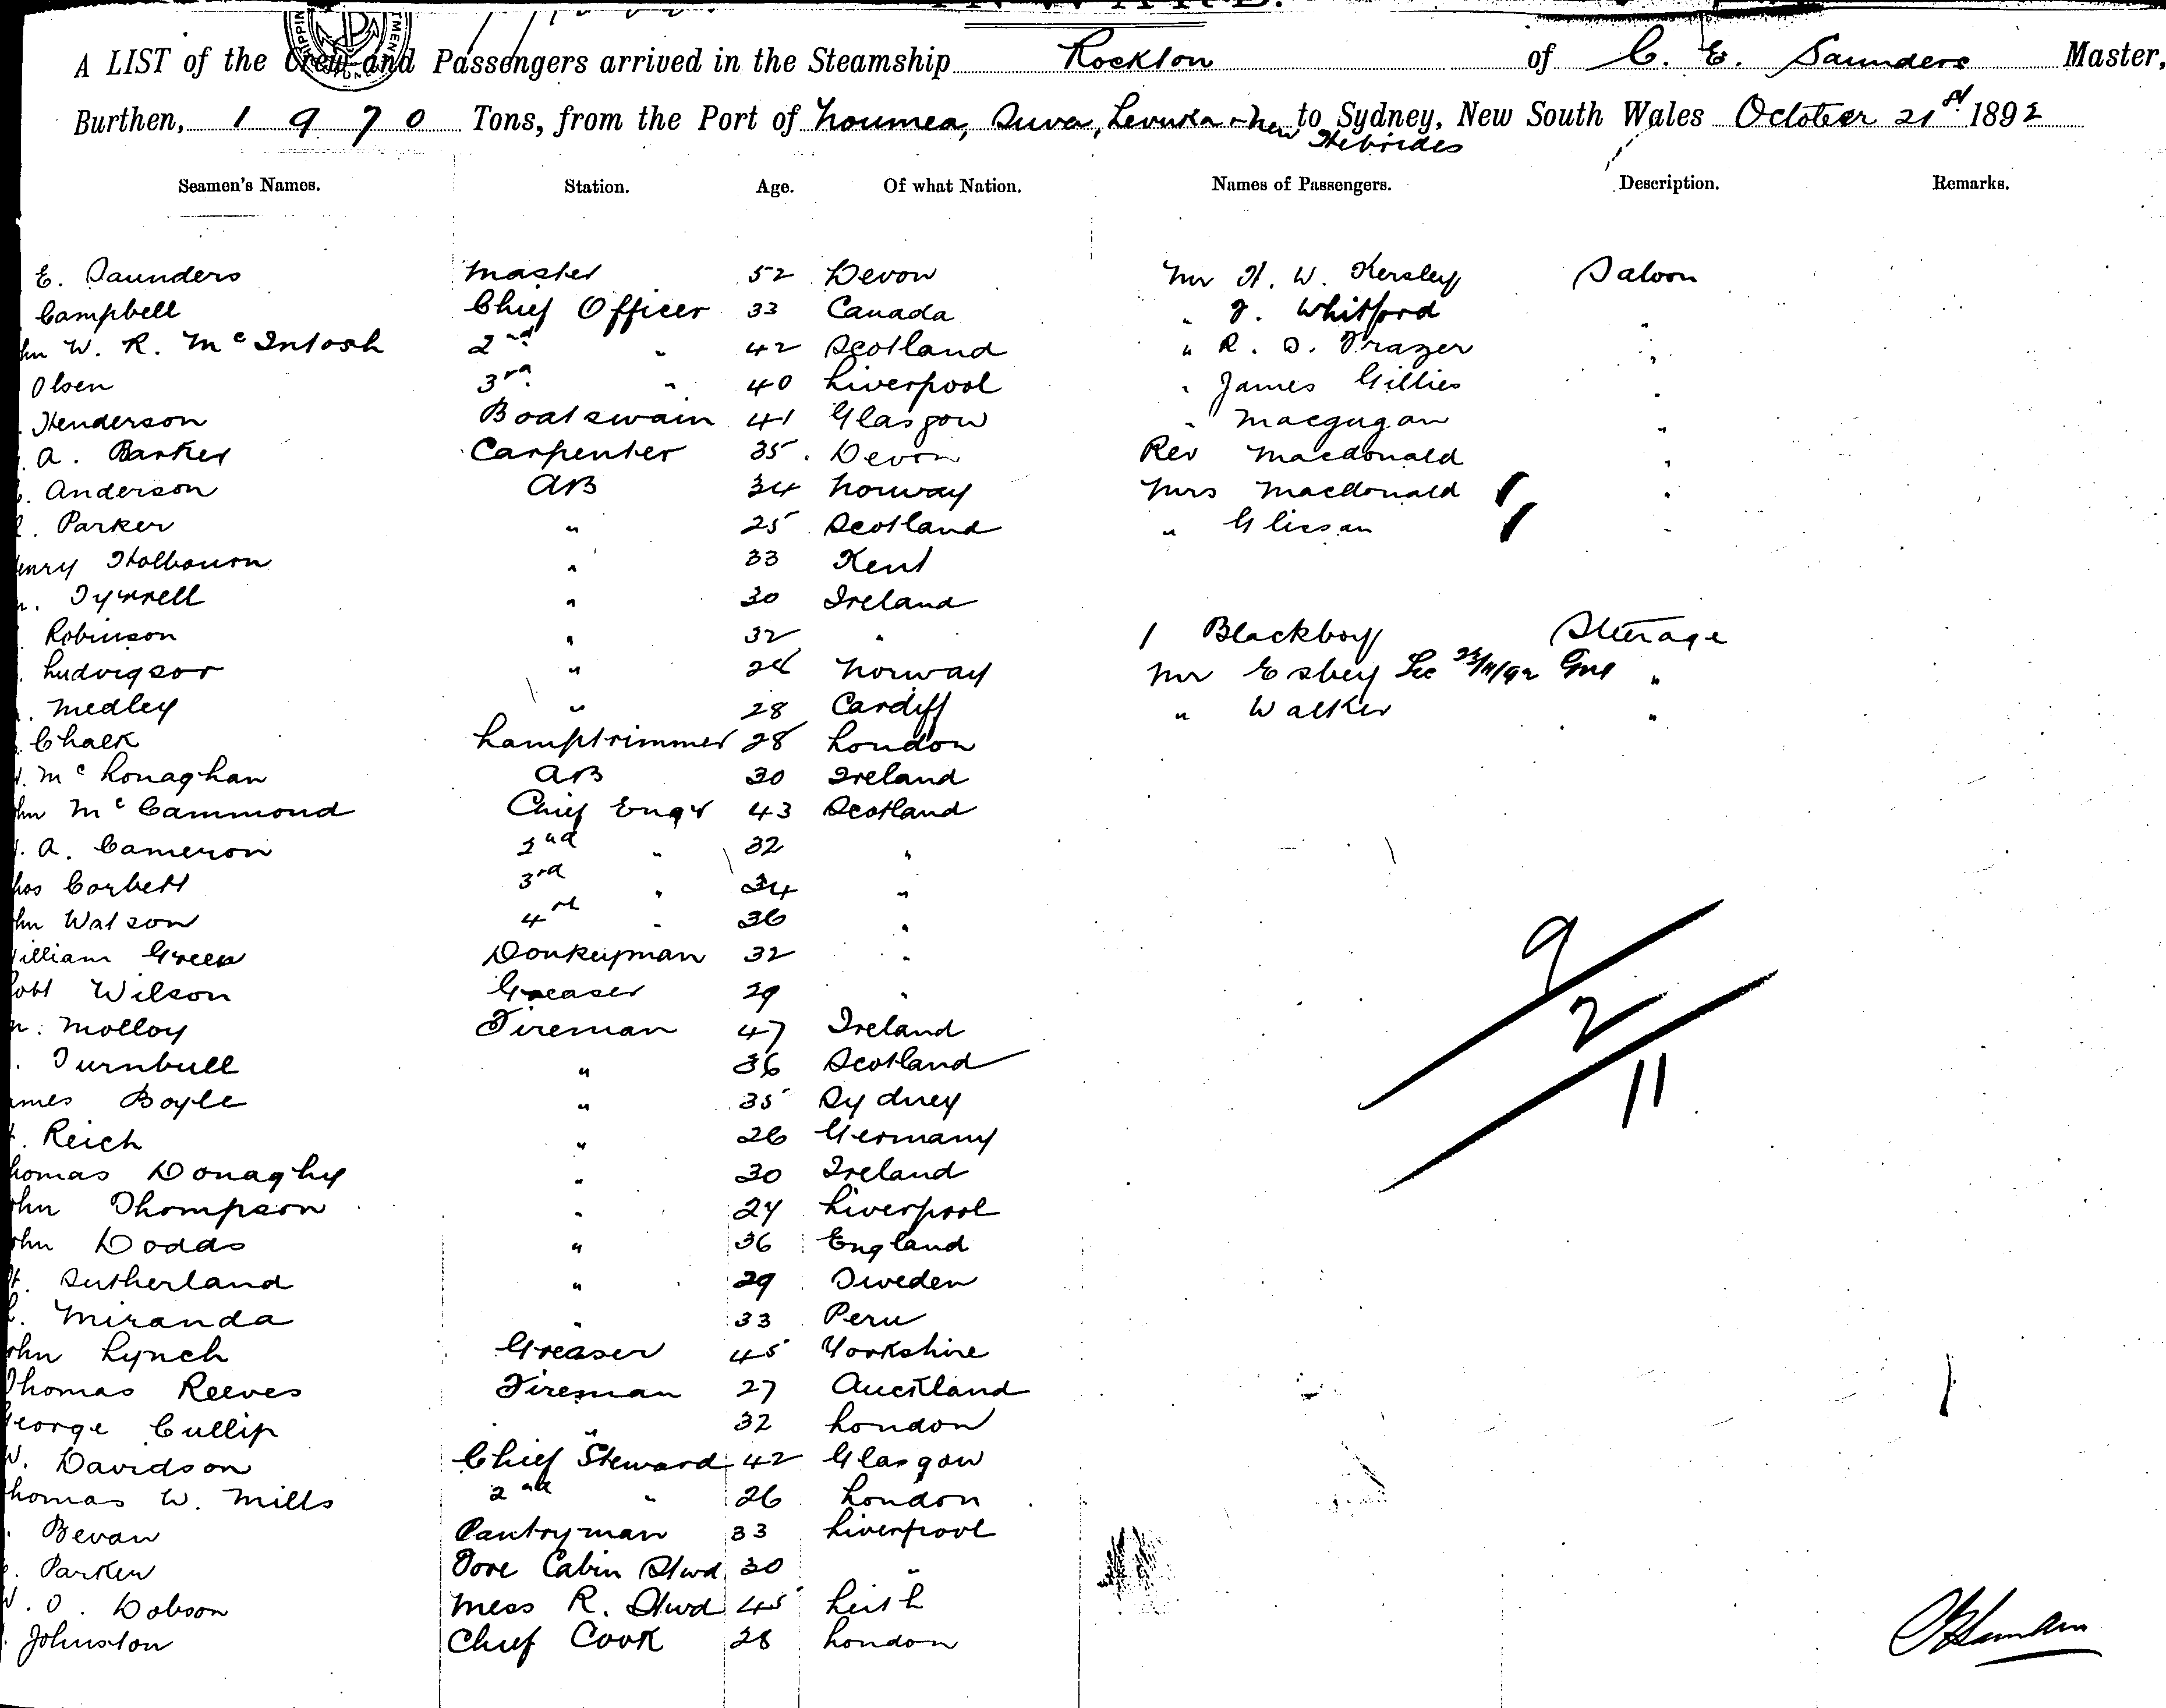 A LIST of the Crew and Passengers arrived in the Steamship Rockton of C. E. Saunders Master,
Burthen, 1970 Tons, from the Port of Noumea, Suva, Levuka & New Hebrides to Sydney, New South Wales October 21st 1892
Seamen's Names. Station. Age. Of what Nation. Names of Passengers. Description. Remarks.
E. Saunders Master 52 Devon Mr H. W. Kersley Saloon
Campbell Chief Officer 33 Canada " J. Whitford "
hn W. R. McIntosh 2nd " 42 Scotland " R. D. Frazer "
Olsen 3rd " 40 Liverpool " James Gillies "
Henderson Boatswain 41 Glasgow " Macgugan "
A. Barker Carpenter 35 Devon Rev Macdonald "
Anderson AB 34 Norway Mrs Macdonald "
Parker " 25 Scotland " Glissan "
enry Holbourn " 33 Kent
Tyrrell " 30 Ireland
Robinson " 32 " 1 Blackboy Steerage
Ludvigsor " 28 Norway Mr Esbey "
Medley " 28 Cardiff " Walker "
Chalk Lamptrimmer 28 London
Mc Lonaghan AB 30 Ireland
hn McCammond Chief Engr 43 Scotland
A. Cameron 2nd " 32 "
hos Corbett 3rd " 34 "
ohn Watson 4th " 36 "
illiam Green Donkeyman 32 "
obt Wilson Greaser 29 "
Molloy Fireman 47 Ireland
Turnbull " 36 Scotland
9
2
11
ames Boyle " 35 Sydney
Reich " 26 Germany
homas Donaghy " 30 Ireland
ohn Thompson " 24 Liverpool
ohn Dodds " 36 England
Sutherland " 29 Sweden
Miranda " 33 Peru
ohn Lynch Greaser 45 Yorkshire
Thomas Reeves Fireman 27 Auckland
George Cullip " 32 London
W. Davidson Chief Steward 42 Glasgow
homas W. Mills 2nd " 26 London
Bevan Pantryman 33 Liverpool
Parker Fore Cabin Stwd 30 "
W. O. Dobson Mess R. Stwd 45 Leith
Johnston Chief Cook 28 London